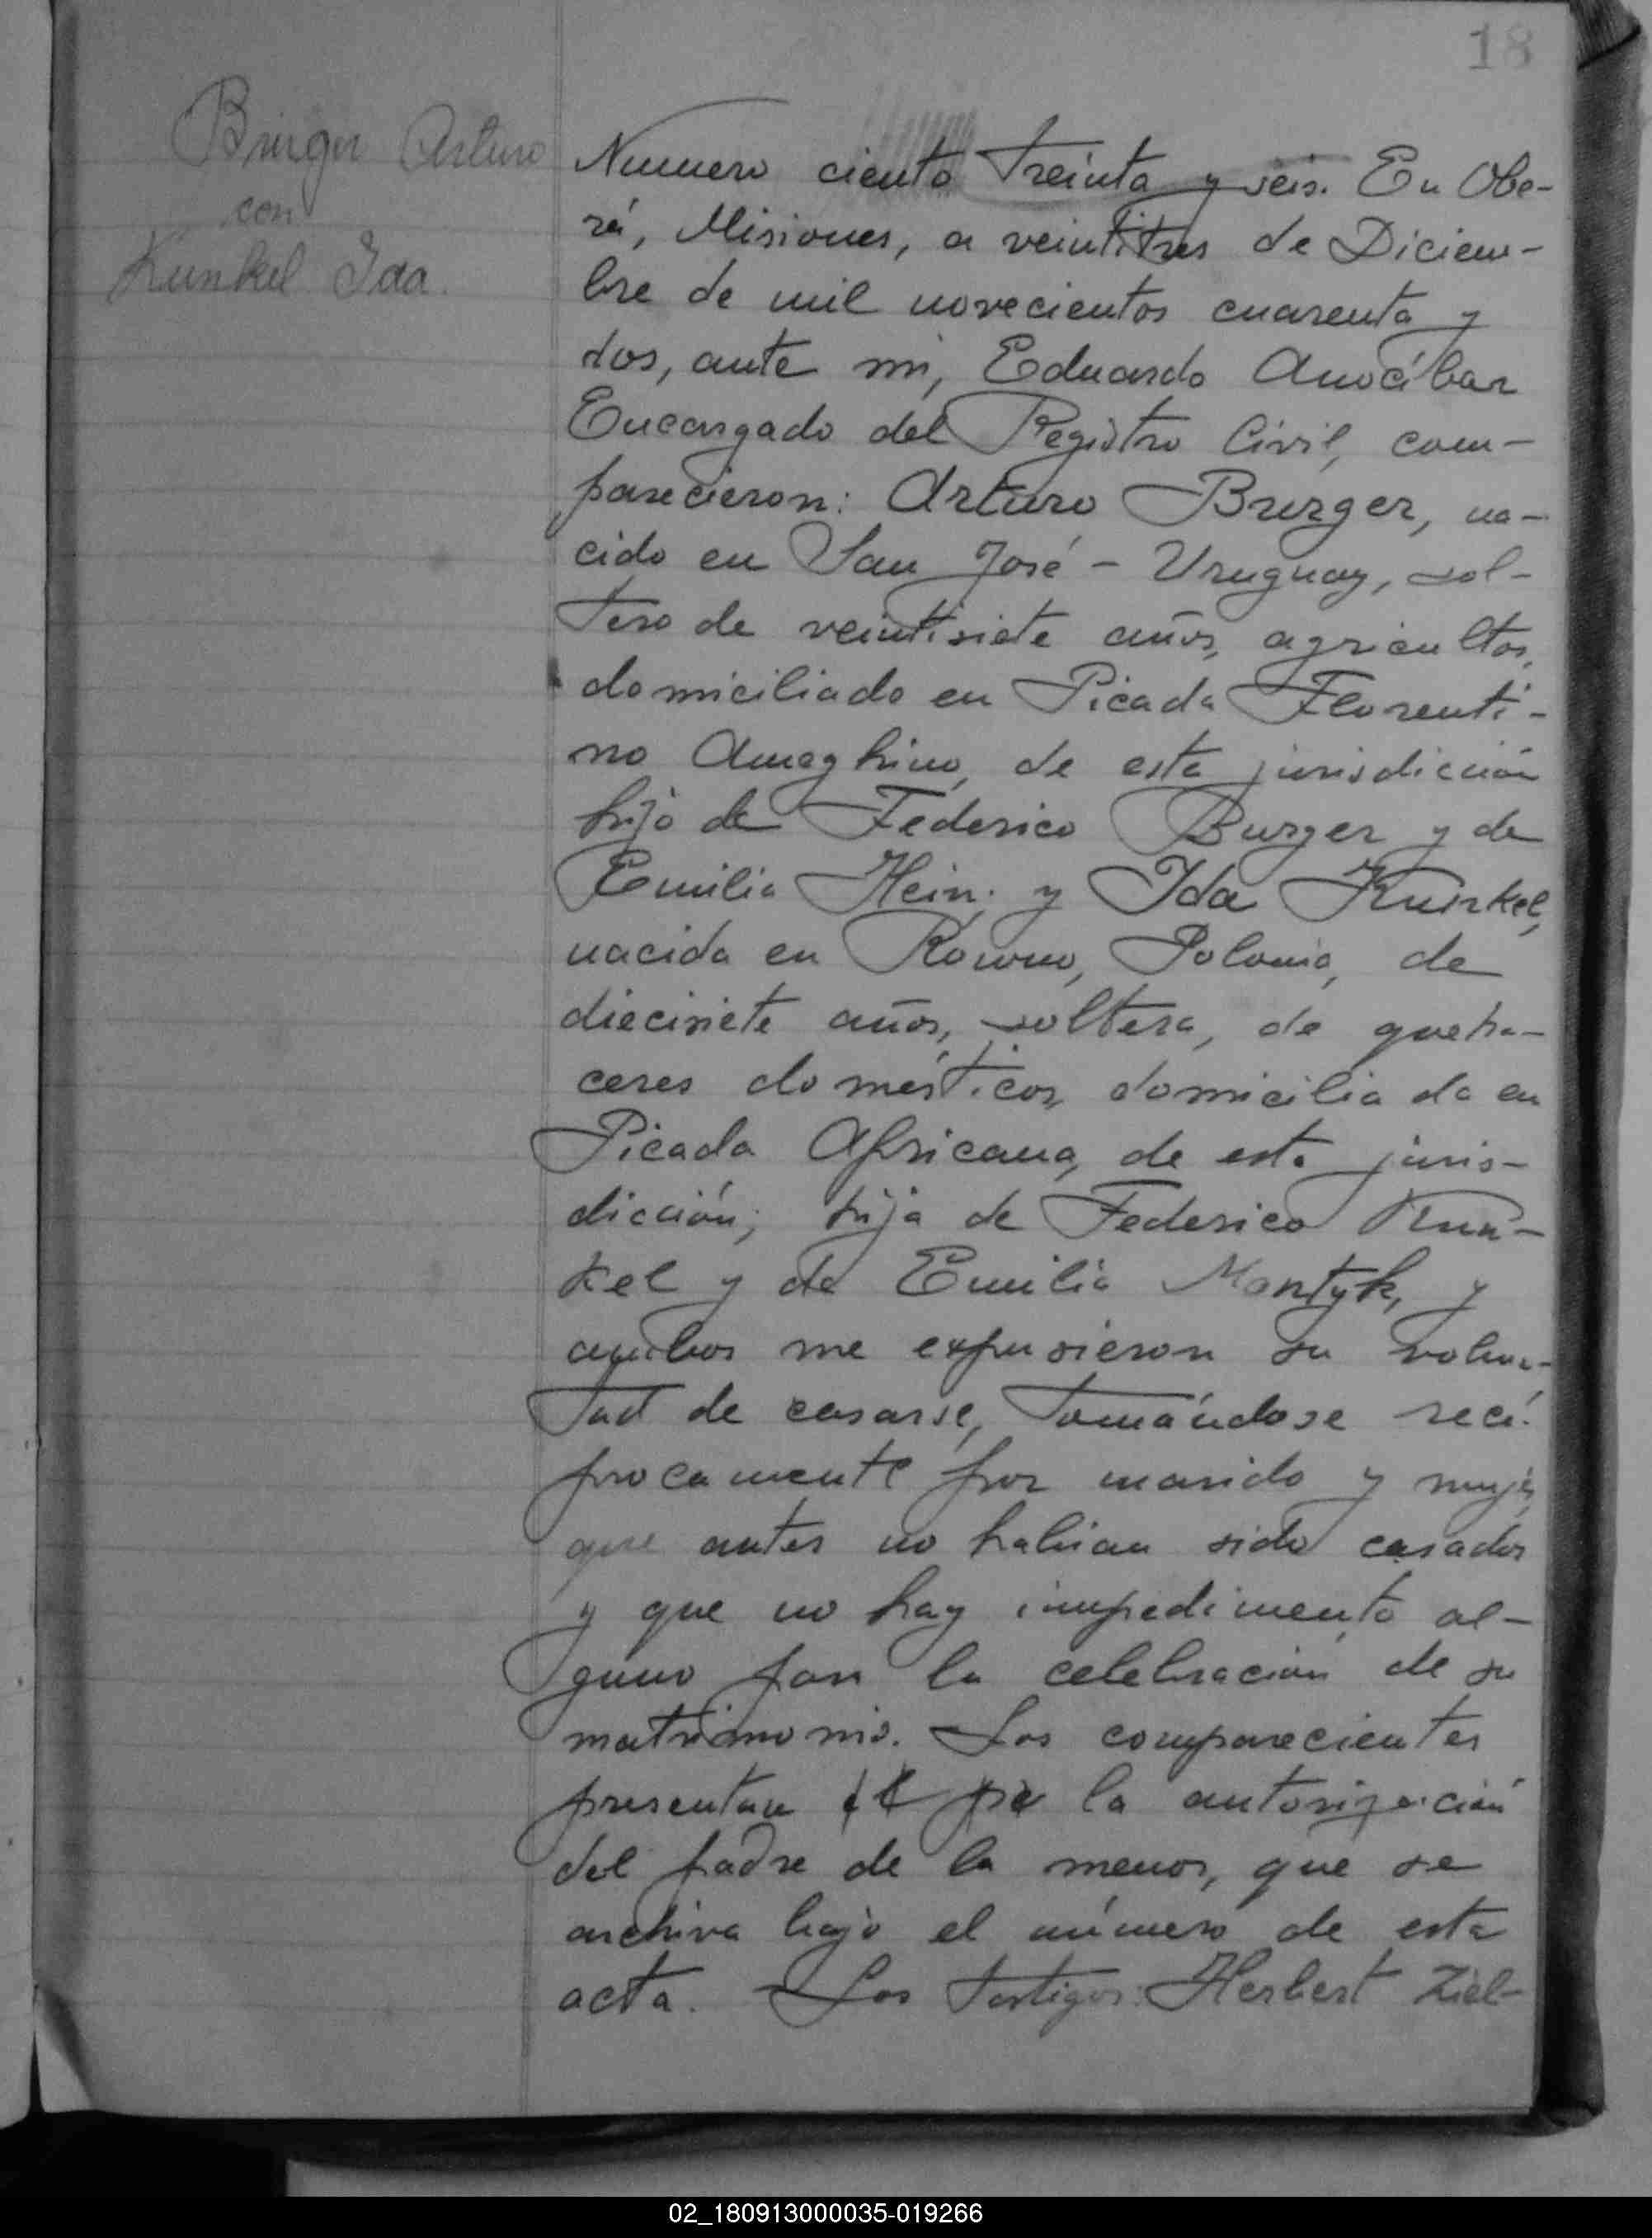 18
Burger Arturo
con
Kunkel Ida.
Numero ciento treinta y seis. En Obe-
rá, Misiones, a veintitres de Diciem-
bre de mil novecientos cuarenta y
dos, ante mi, Eduardo Amocíbar
Encargado del Registro Civil, com-
parecieron: Arturo Burger, na-
cido en San José - Uruguay, sol-
tero de veintisiete años, agricultor,
domiciliado en Picada Florenti-
no Ameghino, de esta jurisdicción
hijo de Federico Burger y de
Emilia Hein; y Ida Kunkel,
nacida en Rowno, Polonia, de
diecisiete años, soltera, de queha-
ceres domésticos, domiciliada en
Picada Africana, de esta juris-
dicción; hija de Federico Kun-
kel y de Emilia Mantyk, y
ambos me expusieron su volun-
tad de casarse, tomándose recí-
procamente por marido y mujer,
que antes no habian sido casados
y que no hay impedimento al-
guno para la celebración de su
matrimonio. Los comparecientes
presentan el pa la autorización
del padre de la menor, que se
archiva bajo el número de esta
acta. Los testigos: Herbert Ziel-
02_180913000035-019266